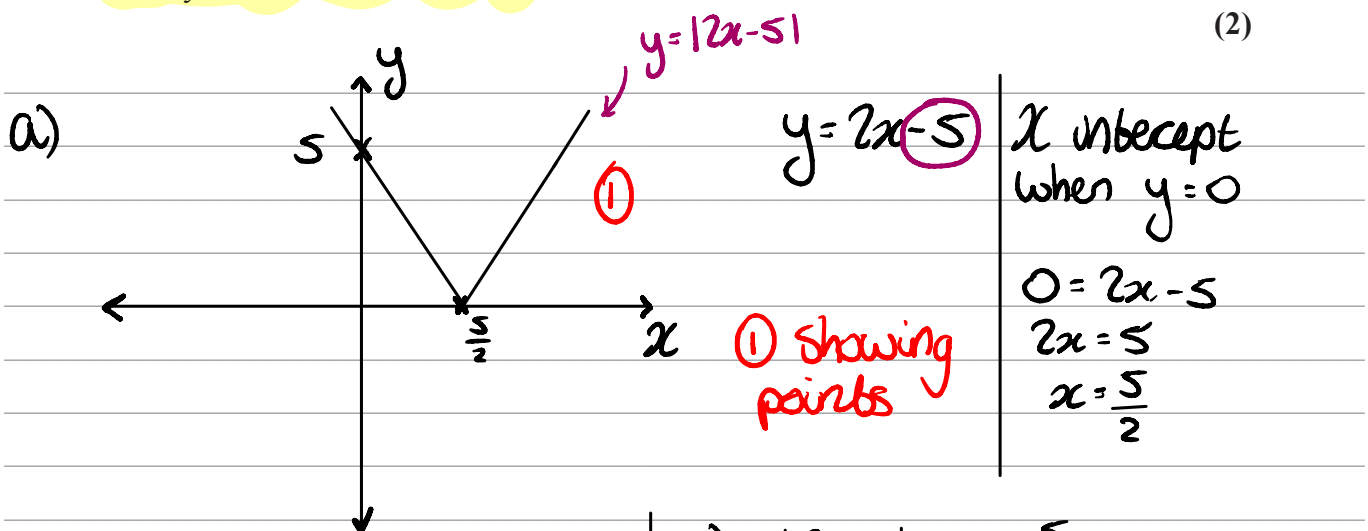 (2)
y=|2x-5|
a)
y
5
①
5/2
x
y=2x-5
① showing
points
x intecept
when y=0
0=2x-5
2x=5
x=5/2